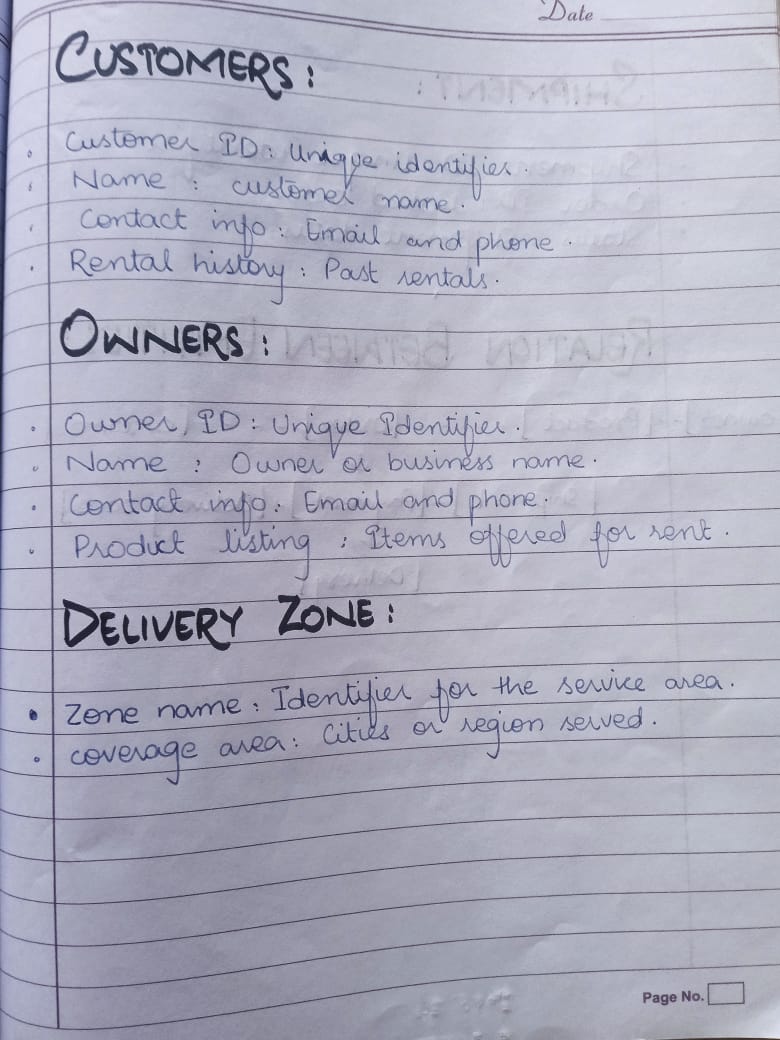 Date
CUSTOMERS:
• Customer ID: Unique identifier.
• Name : customer name.
• Contact info : Email and phone.
• Rental history : Past rentals.
OWNERS:
• Owner ID: Unique Identifier.
• Name : Owner or business name.
• Contact info : Email and phone.
• Product listing : Items offered for rent.
DELIVERY ZONE:
• Zone name : Identifier for the service area.
• coverage area : Cities or region served.
Page No.